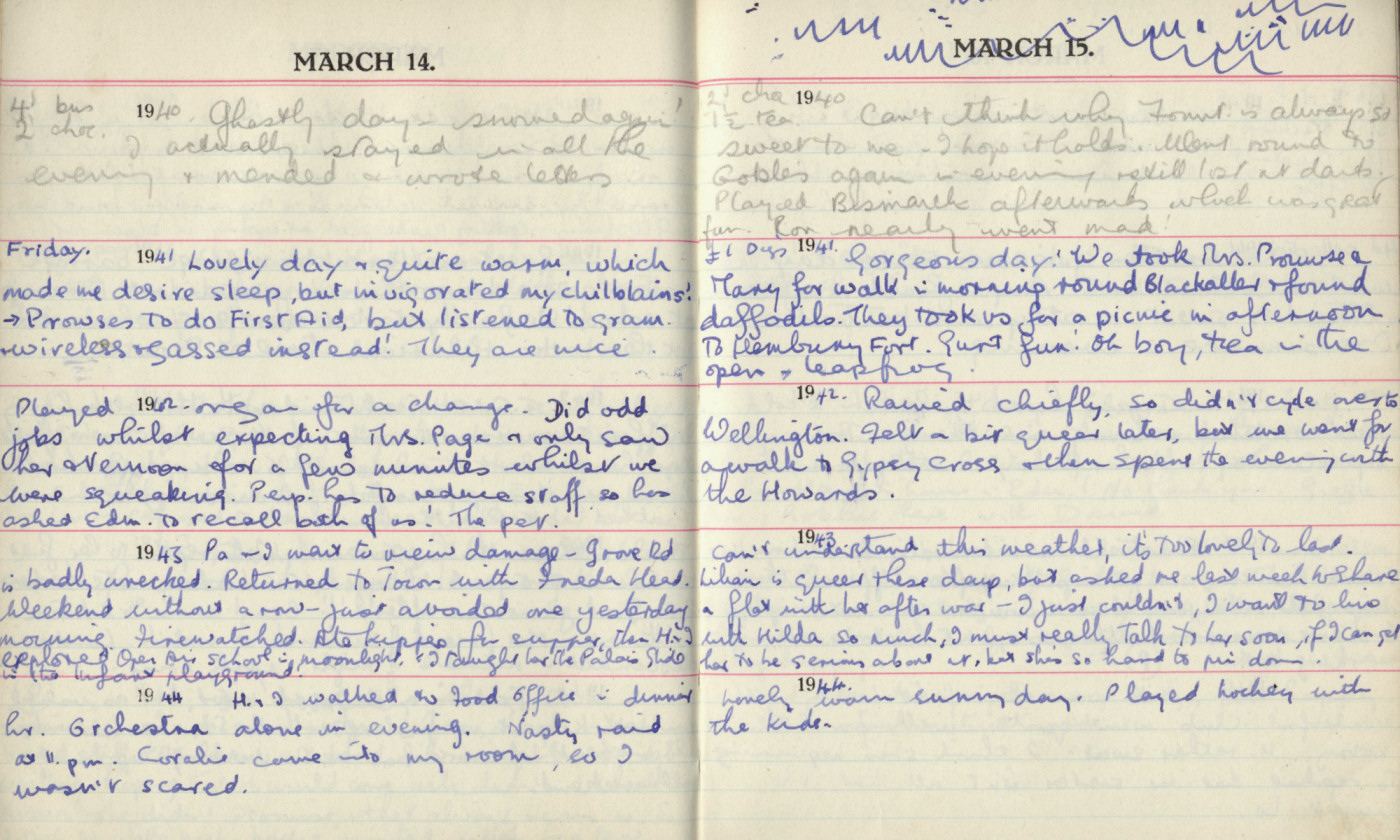 MARCH 14.
4' bus 1940. Ghastly day - snowed again!
2' choc. I actually stayed in all the
evening & mended & wrote letters
Friday. 1941 Lovely day & quite warm, which
made me desire sleep, but invigorated my chilblains!
→ Prowses to do First Aid, but listened to gram.
& wireless & gassed instead! They are nice.
Played 1942. organ for a change. Did odd
jobs whilst expecting Mrs. Page & only saw
her afternoon for a few minutes whilst we
were squeaking. Perp. has to reduce staff so has
asked Edm. to recall both of us! The pet.
1943 Pa & I went to view damage - Grove Rd
is badly wrecked. Returned to Town with Freda Head.
Weekend without a row - just avoided one yesterday
morning. Firewatched. Ate kippers for supper, then H & I
explored Open Air school in moonlight, & I taught her the Palais Glide
in the Infants playground.
1944 H. & I walked to Food Office in dinner
hr. Orchestra alone in evening. Nasty raid
at 11. pm. Coralie came into my room, so I
wasn't scared.
MARCH 15.
2' cha 1940
1½ tea Can't think why is always so
sweet to me - I hope it holds. Went round to
Goble's again in evening & still lost at darts.
Played Bismarck afterwards which was great
fun. Ron nearly went mad!
£1 Dys 1941. Gorgeous day! We took Mrs. Prowse &
Mary for walk in morning round Blackaller & found
daffodils. They took us for a picnic in afternoon
to Hembury Fort. Gurt fun! Oh boy, tea in the
open & leapfrog.
1942. Rained chiefly, so didn't cycle over to
Wellington. Felt a bit queer later, but we went for
a walk to Gypsy Cross & then spent the evening with
the Howards.
1943. Can't understand this weather, it's too lovely to last.
Lilian is queer these days, but asked me last week to share
a flat with her after war - I just couldn't, I want to live
with Hilda so much, I must really talk to her soon, if I can get
her to be serious about it, but she's so hard to pin down.
1944. Lovely, warm sunny day. Played hockey with
the kids.